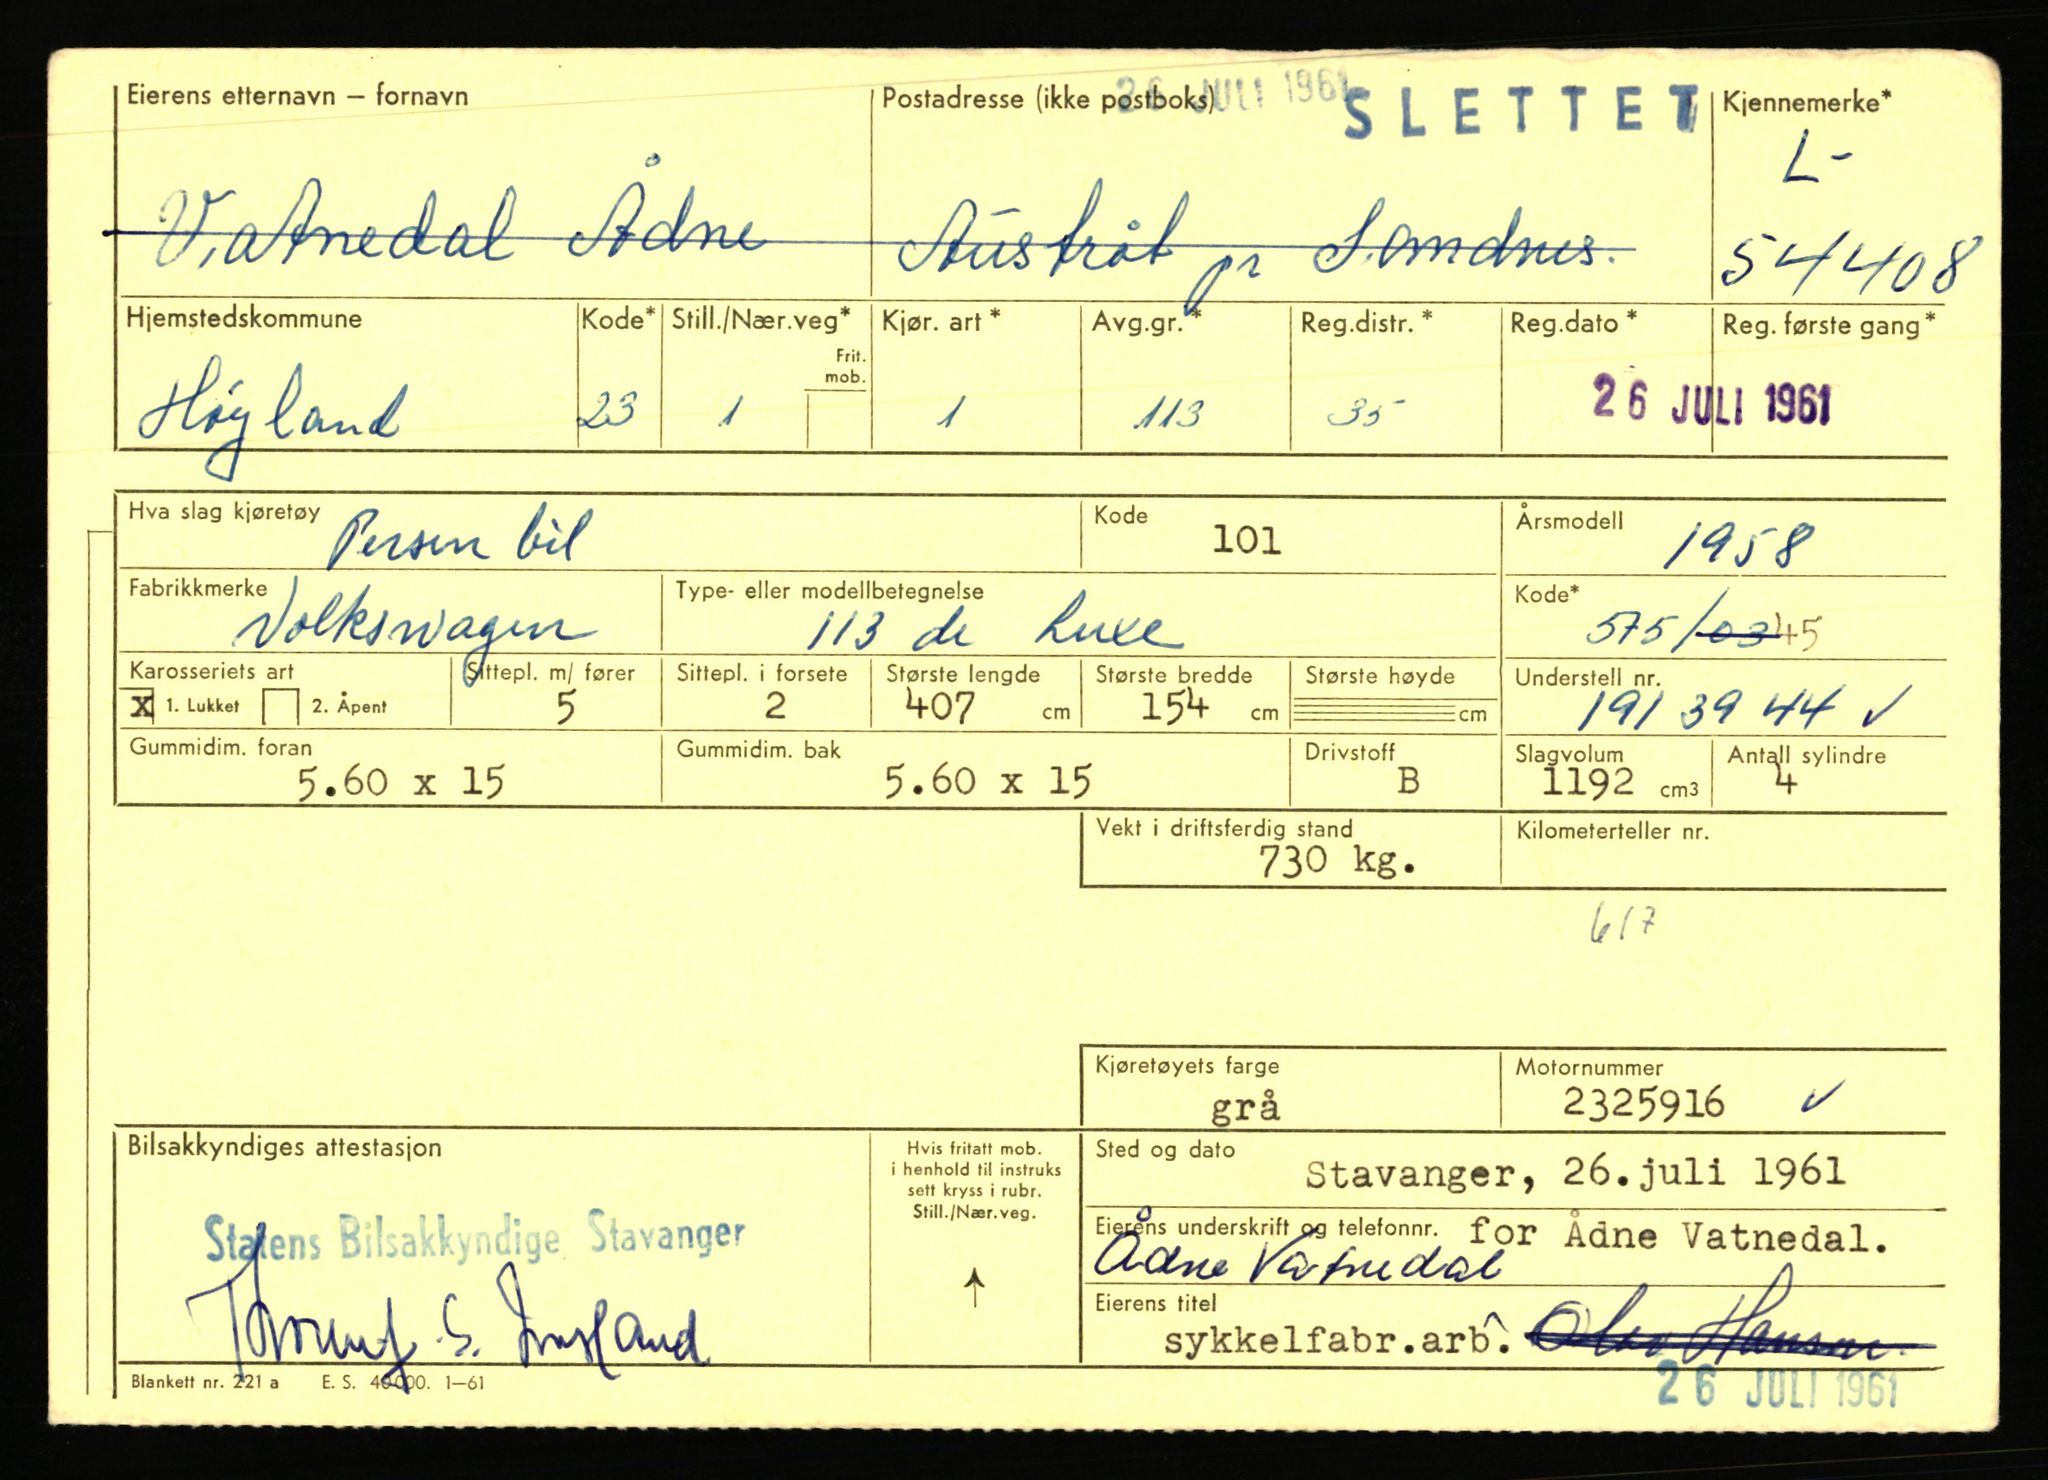 26 JULI 1961 SLETTET
Eierens etternavn – fornavn Postadresse (ikke postboks) Kjennemerke*
Vatnedal Ådne Austråt pr Sandnes. L- 54408
Hjemstedskommune Kode* Still./Nær.veg* Frit. mob. Kjør. art * Avg.gr. * Reg.distr. * Reg.dato * Reg. første gang *
Høyland 23 1 1 113 35 26 JULI 1961
Hva slag kjøretøy Kode Årsmodell
Person bil 101 1958
Fabrikkmerke Type- eller modellbetegnelse Kode*
Volkswagen 113 de Luxe 575/03 45
Karosseriets art Sittepl. m/ fører Sittepl. i forsete Største lengde Største bredde Største høyde Understell nr.
X 1. Lukket 2. Åpent 5 2 407 cm 154 cm cm 191 39 44 ✓
Gummidim. foran Gummidim. bak Drivstoff Slagvolum Antall sylindre
5.60 x 15 5.60 x 15 B 1192 cm3 4
Vekt i driftsferdig stand Kilometerteller nr.
730 kg.
617
Kjøretøyets farge Motornummer
grå 2325916 ✓
Bilsakkyndiges attestasjon
Hvis fritatt mob.
i henhold til instruks
sett kryss i rubr.
Still./Nær.veg.
Sted og dato
Stavanger, 26.juli 1961
Statens Bilsakkyndige Stavanger
Eierens underskrift og telefonnr. for Ådne Vatnedal.
Ådne Vatnedal
Eierens titel
sykkelfabr.arb. Hansen
Blankett nr. 221 a E. S. 40 000. 1–61
26 JULI 1961